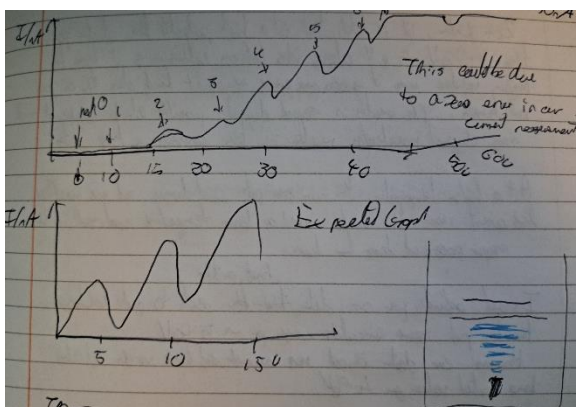 I/nA
5
4
3
2
1
This could be due
to a zero error in our
current measurement
10 15 20 30 40 50
I/nA
Expected Graph
5 10 15 U